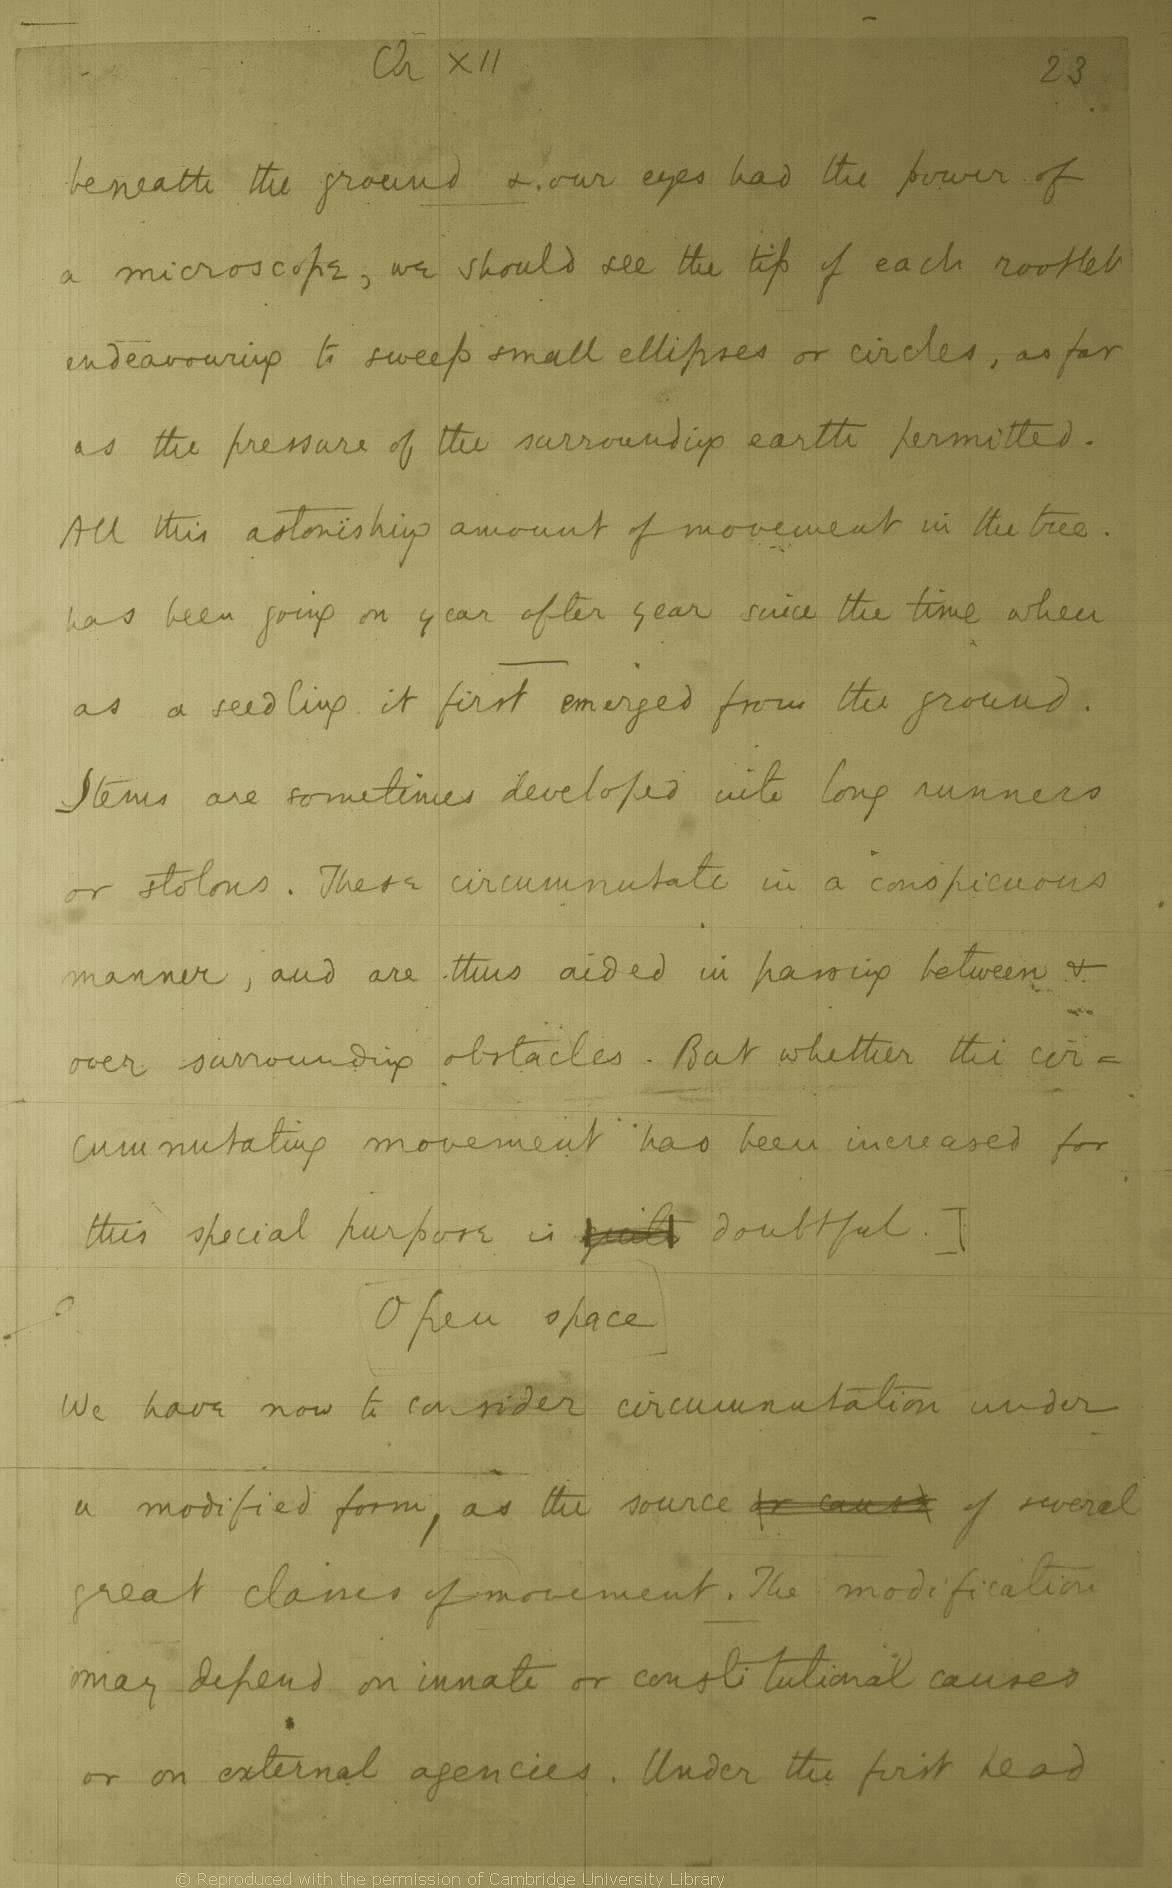 Ch XII 23
beneath the ground &. our eyes had the power of
a microscope, we should see the tip of each rootlet
endeavouring to sweep small ellipses or circles, as far
as the pressure of the surrounding earth permitted.
All this astonishing amount of movement in the tree.
has been going on year after year since the time when
as a seedling it first emerged from the ground.
Stems are sometimes developed into long runners
or stolons. These circumnutate in a conspicuous
manner, and are thus aided in passing between &
over surrounding obstacles. But whether the cir=
cumnutating movement has been increased for
this special purpose is quite doubtful.]
Open space
We have now to consider circumnutation under
a modified form, as the source or cause of several
great classes of movement. The modification
may depend on innate or constitutional causes
or on external agencies. Under the first head
© Reproduced with the permission of Cambridge University Library